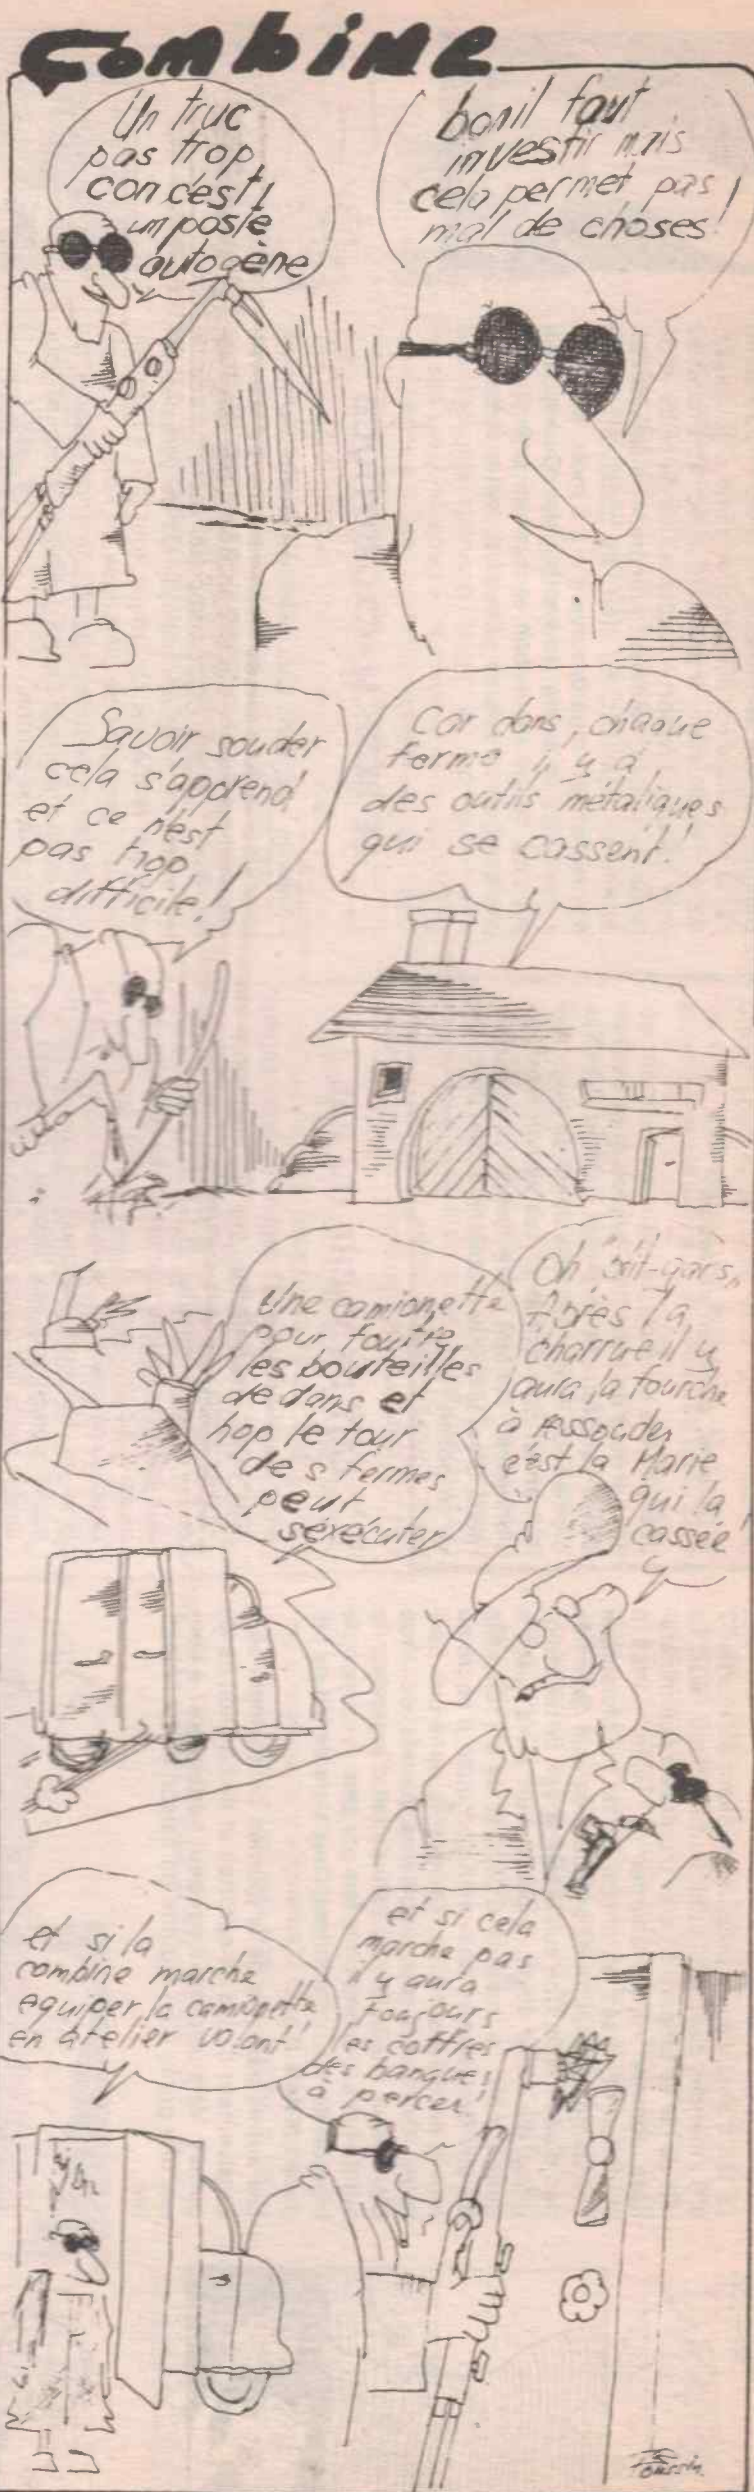 Combine
Un truc
pas trop
con c'est
un poste
autogène
bon il faut
investir mais
cela permet pas
mal de choses!
Savoir souder
cela s'apprend
et ce n'est
pas trop
difficile!
Car dans chaque
ferme il y a
des outils métaliques
qui se cassent!
Une camionette
pour foutre
les bouteilles
dedans et
hop le tour
des fermes
peut
s'exécuter
Oh
Après la
charrue il y
aura la fourche
à ressouder
c'est la Marie
qui la
cassée!
et si la
combine marche
equiper la camionette
en atelier volant!
et si cela
marche pas
il y aura
toujours
les coffres
des banques
à percer!